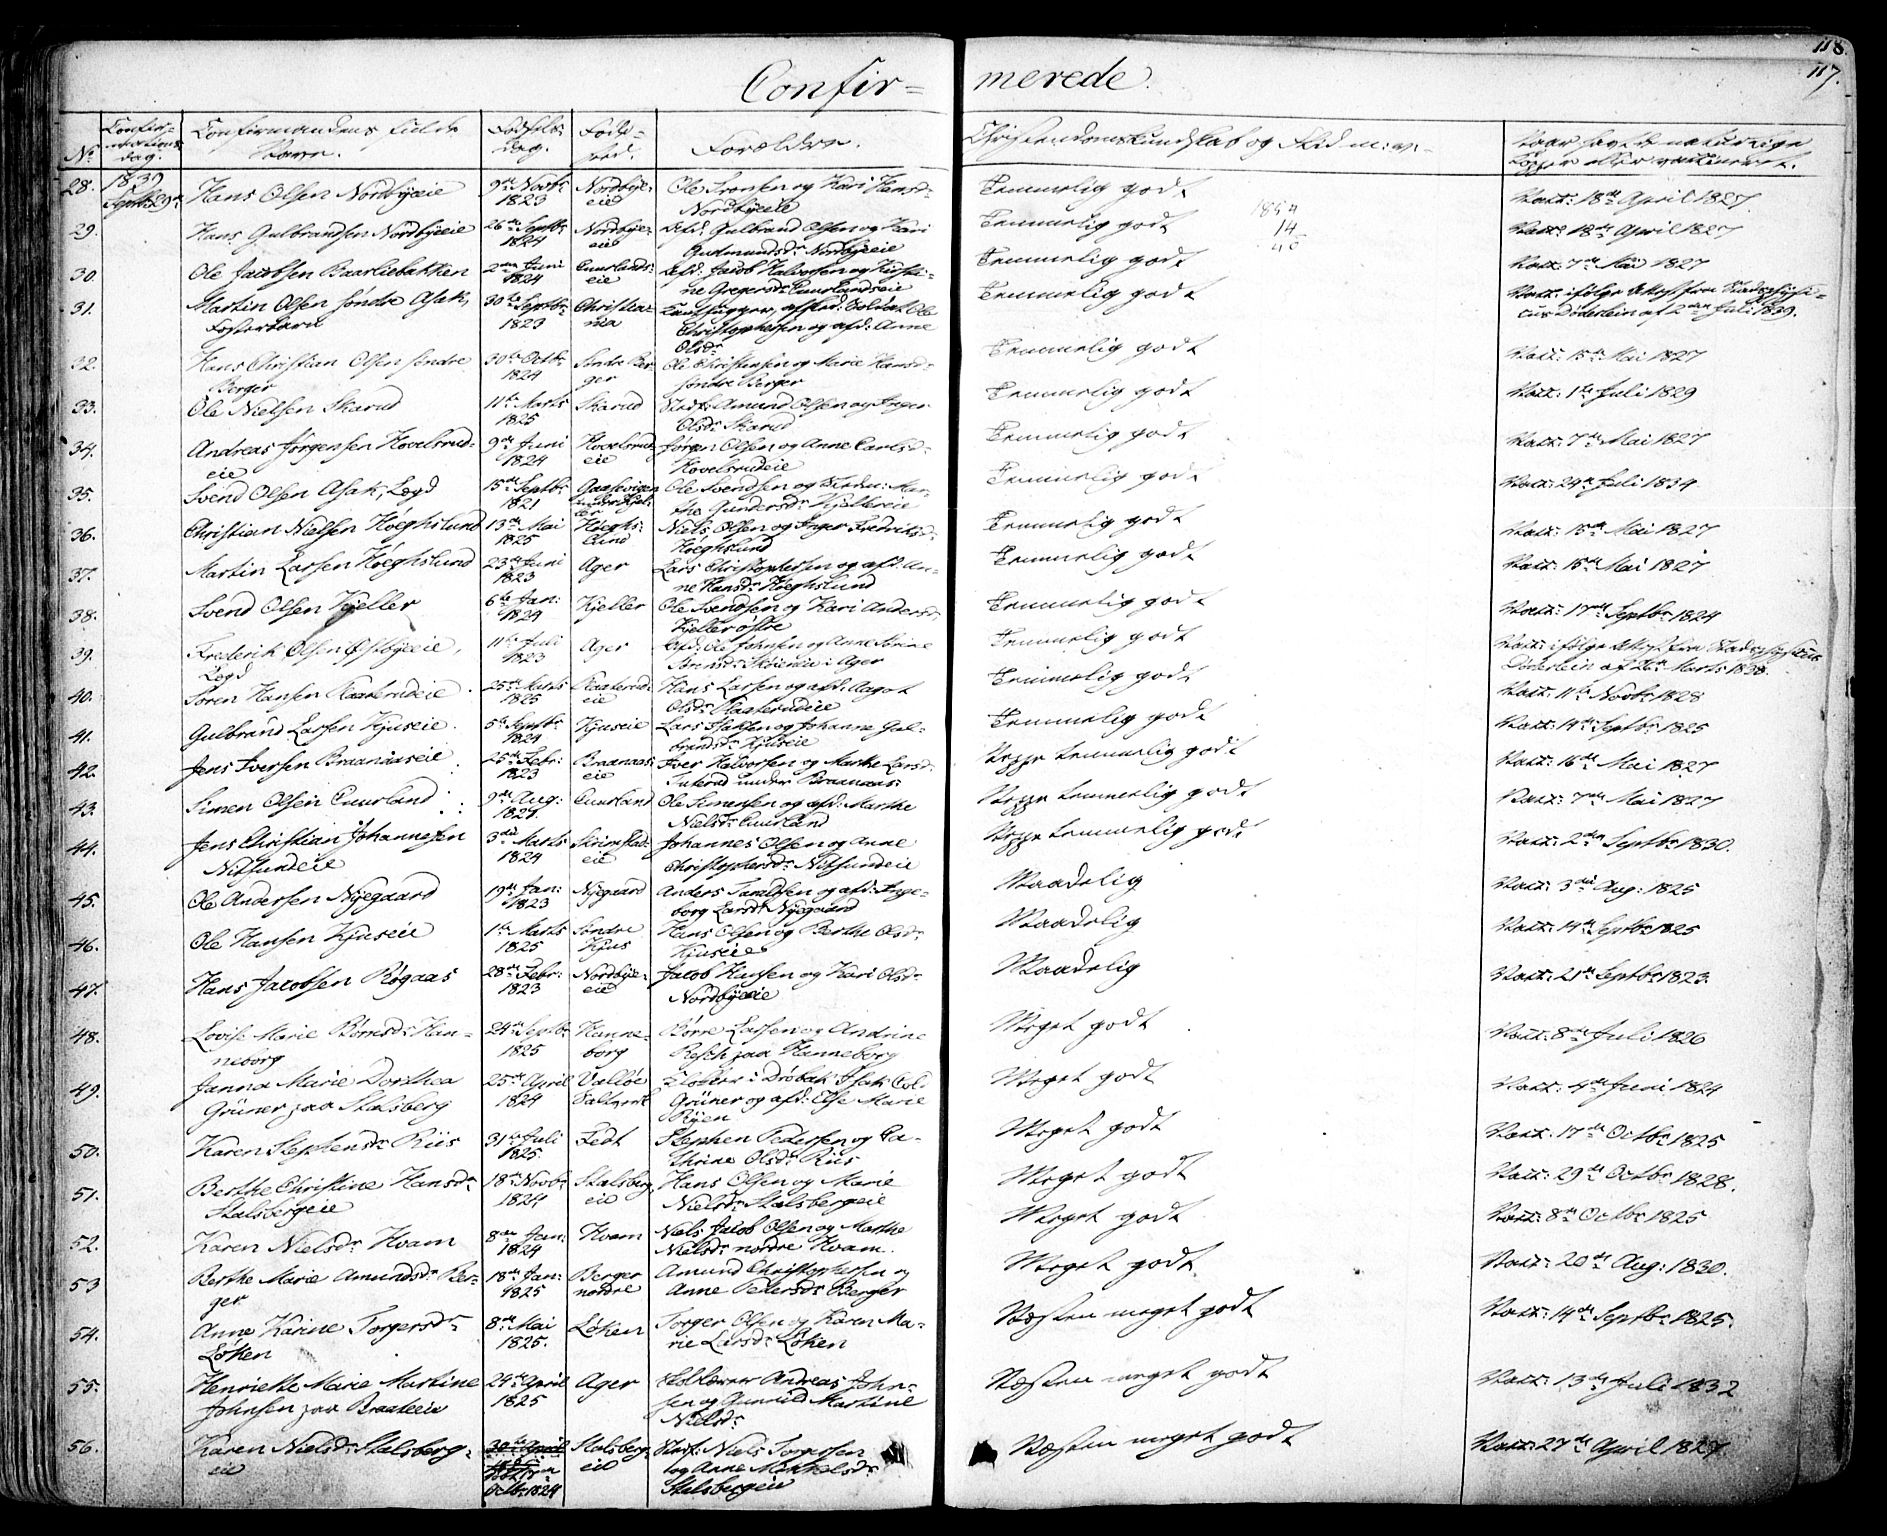 118.
117.
Confir= merede.
No
Confir=
mations
dag.
Confirmandens fulde
Navn.
Fødsels
dag.
Føde=
sted.
Forældre.
Christendomskundskab og Flid m: v:
Naar havt de naturlige
Kopper eller vaccineret.
28. 1839 Septbr 29de Hans Olsen Nordbyeie 9de Novbr 1823 Nordbye=eie Ole Svensen og Kari Hansdr Nordbyeie Temmelig godt Vacc: 18de April 1827
29. Hans Gulbrandsen Nordbyeie 26de Septbr 1824 Nordbye=eie Afd: Gulbrand Olsen og Kari Gudmundsdr Nordbyeie Temmelig godt Vacc: 18de April 1827
1854
14
40
30. Ole Jacobsen Baarliebakken 2den Juni 1824 Cuurlands=eie Afd: Jacob Halvorsen og Kirsti=ne Gregersdr Cuurlandseie Temmelig godt Vacc: 7de Mai 1827
31. Martin Olsen søndre Asak, Fosterbarn 30te Septbr 1823 Christia=nia afsked: Soldat Ole Christophersen og afd: Anne Olsdr Temmelig godt Vacc: ifølge Attest fra Stadsphysi=cus Døderlein af 2den Juli 1839.
32. Hans Christian Olsen søndre Berger 30te Octbr 1824 Søndre Ber=ger Ole Christensen og Marie Hansdr søndre Berger Temmelig godt Vacc: 15de Mai 1827
33. Ole Nielsen Skarud 11te Marts 1825 Skarud Amund Olsen og Inger Olsdr Skarud Temmelig godt Vacc: 1ste Juli 1829
34. Andreas Jørgensen Hovelsrud=eie 9de Juni 1824 Hovelsrud=eie Jørgen Olsen og Anne Carlsdr Hovelsrudeie Temmelig godt Vacc: 7de Mai 1827
35. Svend Olsen Asak, Lægd 15de Septbr 1821 Gaasevigen under Kjel=ler Ole Svendsen og Mar=the Gundersdr Kjellereie Temmelig godt Vacc: 24de Juli 1834
36. Christian Nielsen Høeghslund 13de Mai 1825 Høeghs=lund Niels Olsen og Inger Fredriksdr Høeghslund Temmelig godt Vacc: 15de Mai 1827
37. Martin Larsen Høeghslund 23de Juni 1823 Ager Lars Christophersen og afd: An=ne Hansdr Høeghslund Temmelig godt Vacc: 15de Mai 1827
38. Svend Olsen Kjeller 6te Jan: 1824 Kjeller Ole Svendsen og Kari Andersdr Kjeller østre Temmelig godt Vacc: 17de Septbr 1824
39. Frederik Olsen Østbyeeie, Lægd 11te Juli 1823 Ager Afd: Ole Johnsen og Anne Sørine i Ager Temmelig godt Vacc: ifølge Attest fra Stadsphysicus Døderlein af Marts 1838.
40. Søren Hansen Kaaterudeie 25de Marts 1825 Kaaterud=eie Hans Larsen og afd: Aagot Olsdr Kaaterudeie Temmelig godt Vacc: 11te Novbr 1828
41. Gulbrand Larsen Kjuseie 5te Septbr 1824 Kjuseie Lars Isaksen og Johanne Gul=brandsdr Kjuseie Temmelig godt Vacc: 14de Septbr 1825
42. Jens Iversen Braanaaseie 25de Febr: 1823 Braanaas=eie Iver Halvorsen og Marthe Larsdr under Braanaas. Neppe temmelig godt Vacc: 16de Mai 1827
43. Simen Olsen Cuurland 9de Aug: 1824. Cuurland Ole Simensen og afd: Marthe Nielsdr Cuurland Neppe temmelig godt Vacc: 7de Mai 1827
44. Jens Christian Johannesen Nitsundeie 3die Marts 1824 Skrimstad=eie Johannes Olsen og Anne Christophersdr Nitsundeie Neppe temmelig godt Vacc: 2den Septbr 1830.
45. Ole Andersen Nyegaard 19de Jan: 1823 Nyegaard Anders Taraldsen og afd: Inge=borg Larsdr Nyegaard Maadelig Vacc: 3die Aug: 1825
46. Ole Hansen Kjuseie 1ste Marts 1825 Søndre Kjus Hans Olsen og Berthe Olsdr Kjuseie Maadelig Vacc: 14de Septbr 1825
47. Hans Jacobsen Røgaas 28de Febr: 1823 Nordbye=eie Jacob Hansen og Kari Olsdr Nordbyeie Maadelig Vacc: 21de Septbr 1823.
48. Lovise Marie Børresdr Han=neborg 24de Septbr 1825 Hanne=borg Børre Larsen og Andrine Resch paa Hanneborg Meget godt Vacc: 8de Juli 1826
49. Janna Marie Dorthea Grüner paa Stalsberg 25de April 1824 Valløe Saltverk i Drøbak Isak Grüner og afd: Else Marie Ryen Meget godt Vacc: 4de Juni 1824
50. Karen Stephensdr Riis 31te Juli 1825. Fedt Stephen Pedersen og Ca=thrine Olsdr Riis Meget godt Vacc: 17de Octbr 1825
51. Berthe Christine Hansdr Stalsbergeie 18de Novbr 1824 Stalsberg=eie Hans Olsen og Marie Nielsdr Stalsbergeie Meget godt Vacc: 29de Octbr 1828.
52. Karen Nielsdr Hvam 8de Jan: 1824 Hvam Niels Jacob Olsen og Marthe Nielsdr nordre Hvam. Meget godt Vacc: 8de Octbr 1825
53 Berthe Marie Amundsdr Ber=ger 18de Jan: 1825 Berger nordre Amund Christophersen og Anne Pedersdr Berger Meget godt Vacc: 20de Aug: 1830.
54. Anne Karine Torgersdr Løken 8de Mai 1825. Løken Torger Olsen og Karen Ma=rie Larsdr Løken Næsten meget godt Vacc: 14de Septbr 1825.
55. Henriette Marie Martine Johnsen paa Braateeie 24de April 1825 Ager Andreas John=sen og Gunnild Martine Nielsdr Næsten meget godt Vacc: 13de Juli 1832
56. Karen Nielsdr Stalsberg=eie Octbr 1824 Stalsberg=eie Niels Torgersen og Anne Mikkelsdr Stalsbergeie Næsten meget godt Vacc: 27de April 1827.